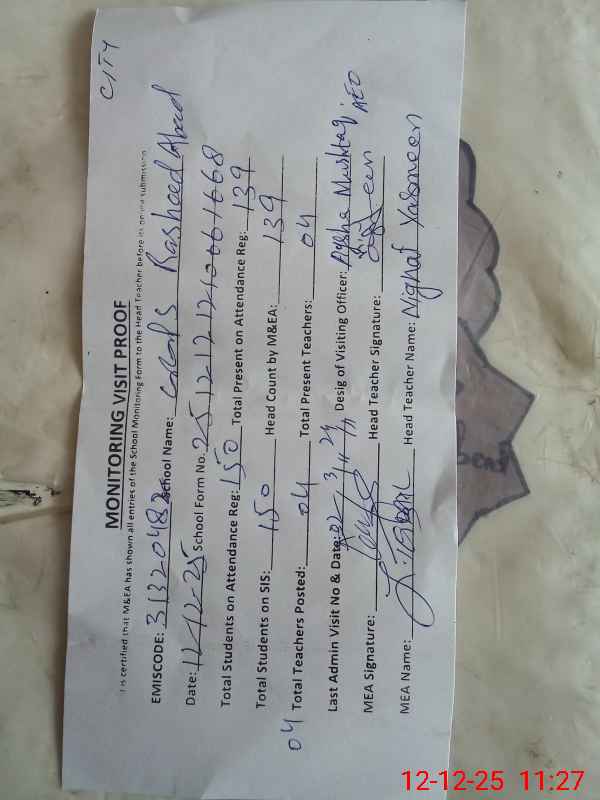 CITY
MONITORING VISIT PROOF
It is certified that M&EA has shown all entries of the School Monitoring Form to the Head Teacher before its online submission
EMISCODE: 31320482 School Name: GGPS Rasheed Abad
Date: 12-12-25 School Form No. 25121212100661668
Total Students on Attendance Reg: 150 Total Present on Attendance Reg: 139
Total Students on SIS: 150 Head Count by M&EA: 139
04 Total Teachers Posted: 04 Total Present Teachers: 04
Last Admin Visit No & Date: 02- Desig of Visiting Officer: Ayesha Mushtaq, AEO
MEA Signature: Head Teacher Signature:
MEA Name: Head Teacher Name: Nighat Yasmeen
12-12-25 11:27